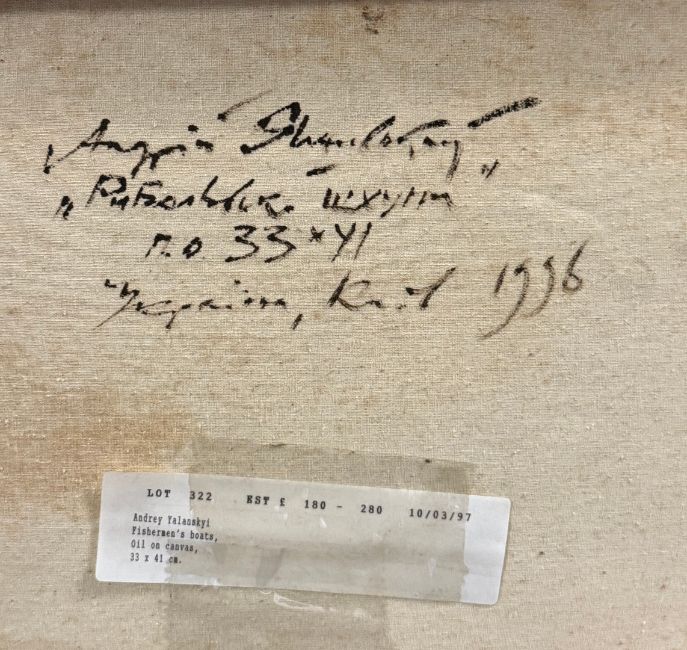 Андрій Яланський
"Рибальські шхуни"
п.о. 33×41
Україна, Київ 1996
LOT 322 EST £ 180 - 280 10/03/97
Andrey Yalanskyi
Fishermen's boats,
Oil on canvas,
33 x 41 cm.